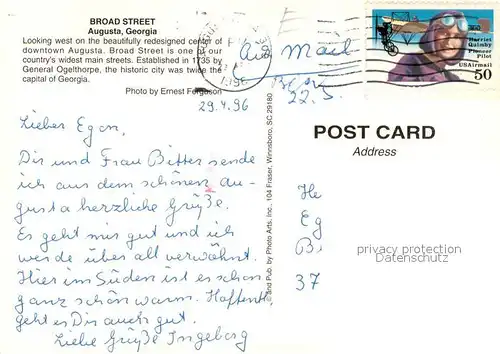 BROAD STREET
Augusta, Georgia
Looking west on the beautifully redesigned center of
downtown Augusta. Broad Street is one of our
country's widest main streets. Established in 1735 by
General Ogelthorpe, the historic city was twice the
capital of Georgia.
Photo by Ernest Ferguson
29.4.96
Lieber Egon,
Dir und Frau Bitter sende
ich aus dem schönen Au-
gusta herzliche Grüße.
Es geht mir gut und ich
werde überall verwöhnt.
Hier im Süden ist es schon
ganz schön warm. Hoffentl.
geht es Dir auch gut.
Liebe Grüße Ingeborg
and Pub. by Photo Arts, Inc., 104 Fraser, Winnsboro, SC 29180
Air Mail
22.5.
Harriet
Quimby
Pioneer
Pilot
USAirmail
50
POST CARD
Address
He
Eg
Bi
37
privacy protection
Datenschutz